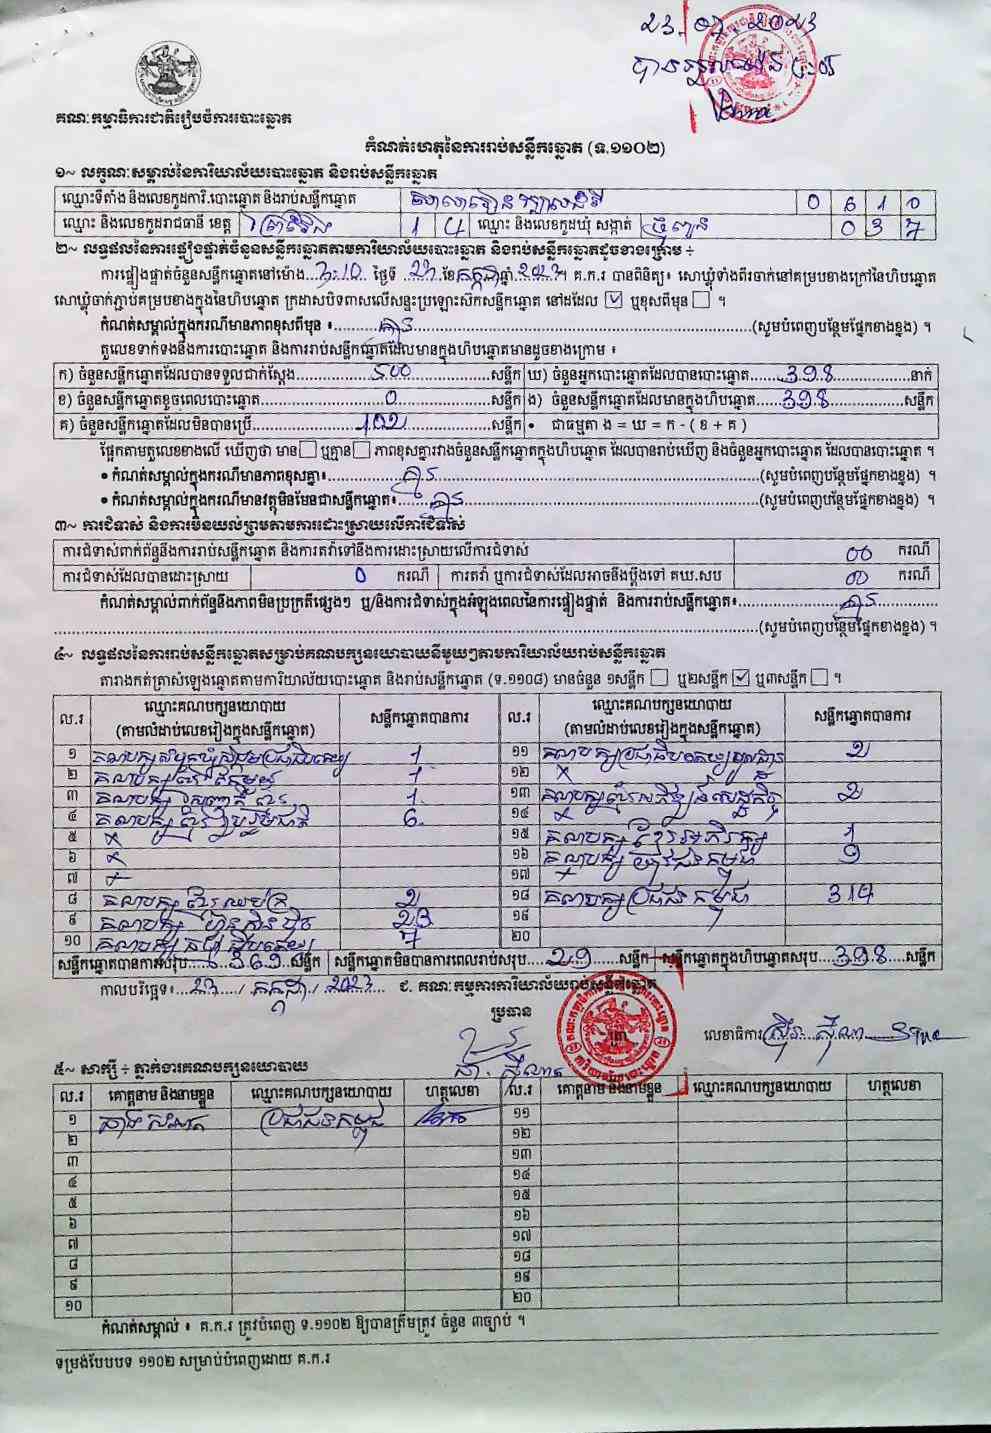 ២៣.០៧.២០២៣
គណៈកម្មាធិការជាតិរៀបចំការបោះឆ្នោត
កំណត់ហេតុនៃការរាប់សន្លឹកឆ្នោត (ទ.១១០២)
១~ លក្ខណៈសម្គាល់នៃការិយាល័យបោះឆ្នោត និងរាប់សន្លឹកឆ្នោត
ឈ្មោះទីតាំង និងលេខកូដការិ.បោះឆ្នោត និងរាប់សន្លឹកឆ្នោត 0 6 1 0
ឈ្មោះ និងលេខកូដរាជធានី ខេត្ត ព្រៃវែង 1 4 ឈ្មោះ និងលេខកូដឃុំ សង្កាត់ 0 3 7
២~ លទ្ធផលនៃការផ្ទៀងផ្ទាត់ចំនួនសន្លឹកឆ្នោតតាមការិយាល័យបោះឆ្នោត និងរាប់សន្លឹកឆ្នោតដូចខាងក្រោម ÷
ការផ្ទៀងផ្ទាត់ចំនួនសន្លឹកឆ្នោតនៅម៉ោង 3:10 ថ្ងៃទី ២៣ ខែ កក្កដា ឆ្នាំ ២០២៣ ។ គ.ក.រ បានពិនិត្យ៖ សោឃ្លុំទាំងពីរចាក់នៅគម្របខាងក្រៅនៃហិបឆ្នោត
សោឃ្លុំចាក់ភ្ជាប់គម្របខាងក្នុងនៃហិបឆ្នោត ក្រដាសបិទពាសលើសន្ទះប្រឡោះស៊កសន្លឹកឆ្នោត នៅដដែល ☑ ឬខុសពីមុន ☐ ។
កំណត់សម្គាល់ក្នុងករណីមានភាពខុសពីមុន ៖ គ្មាន (សូមបំពេញបន្ថែមផ្នែកខាងខ្នង) ។
តួលេខទាក់ទងនឹងការបោះឆ្នោត និងការរាប់សន្លឹកឆ្នោតដែលមានក្នុងហិបឆ្នោតមានដូចខាងក្រោម ៖
ក) ចំនួនសន្លឹកឆ្នោតដែលបានទទួលជាក់ស្តែង 500 សន្លឹក ឃ) ចំនួនអ្នកបោះឆ្នោតដែលបានបោះឆ្នោត 398 នាក់
ខ) ចំនួនសន្លឹកឆ្នោតខូចពេលបោះឆ្នោត 0 សន្លឹក ង) ចំនួនសន្លឹកឆ្នោតដែលមានក្នុងហិបឆ្នោត 398 សន្លឹក
គ) ចំនួនសន្លឹកឆ្នោតដែលមិនបានប្រើ 102 សន្លឹក • ជាធម្មតា ង = ឃ = ក - ( ខ + គ )
ផ្អែកតាមតួលេខខាងលើ ឃើញថា មាន ☐ ឬគ្មាន ☐ ភាពខុសគ្នារវាងចំនួនសន្លឹកឆ្នោតក្នុងហិបឆ្នោត ដែលបានរាប់ឃើញ និងចំនួនអ្នកបោះឆ្នោត ដែលបានបោះឆ្នោត ។
• កំណត់សម្គាល់ក្នុងករណីមានភាពខុសគ្នា៖ គ្មាន (សូមបំពេញបន្ថែមផ្នែកខាងខ្នង) ។
• កំណត់សម្គាល់ក្នុងករណីមានវត្ថុមិនមែនជាសន្លឹកឆ្នោត៖ គ្មាន (សូមបំពេញបន្ថែមផ្នែកខាងខ្នង) ។
៣~ ការជំទាស់ និងការមិនយល់ព្រមតាមការដោះស្រាយលើការជំទាស់
ការជំទាស់ពាក់ព័ន្ធនឹងការរាប់សន្លឹកឆ្នោត និងការតវ៉ាទៅនឹងការដោះស្រាយលើការជំទាស់ 00 ករណី
ការជំទាស់ដែលបានដោះស្រាយ 0 ករណី ការតវ៉ា ឬការជំទាស់ដែលអាចនឹងប្តឹងទៅ គឃ.សប 00 ករណី
កំណត់សម្គាល់ពាក់ព័ន្ធនឹងភាពមិនប្រក្រតីផ្សេងៗ ឬ/និងការជំទាស់ក្នុងអំឡុងពេលនៃការផ្ទៀងផ្ទាត់ និងការរាប់សន្លឹកឆ្នោត៖ គ្មាន
(សូមបំពេញបន្ថែមផ្នែកខាងខ្នង) ។
៤~ លទ្ធផលនៃការរាប់សន្លឹកឆ្នោតសម្រាប់គណបក្សនយោបាយនីមួយៗតាមការិយាល័យរាប់សន្លឹកឆ្នោត
តារាងកត់ត្រាសំឡេងឆ្នោតតាមការិយាល័យបោះឆ្នោត និងរាប់សន្លឹកឆ្នោត (ទ.១១០៨) មានចំនួន ១សន្លឹក ☐ ឬ២សន្លឹក ☑ ឬ៣សន្លឹក ☐ ។
ល.រ ឈ្មោះគណបក្សនយោបាយ (តាមលំដាប់លេខរៀងក្នុងសន្លឹកឆ្នោត) សន្លឹកឆ្នោតបានការ ល.រ ឈ្មោះគណបក្សនយោបាយ (តាមលំដាប់លេខរៀងក្នុងសន្លឹកឆ្នោត) សន្លឹកឆ្នោតបានការ
១ គណបក្សសំបុកឃ្មុំសង្គមប្រជាធិបតេយ្យ 1 ១១ គណបក្សប្រជាធិបតេយ្យមូលដ្ឋាន 2
២ គណបក្សខ្មែររួបរួមជាតិ 1 ១២ x
៣ 1 ១៣ 2
៤ គណបក្ស 6 ១៤ x
៥ x ១៥ គណបក្សខ្មែរអភិរក្ស 1
៦ x ១៦ គណបក្ស 1
៧ x ១៧
៨ គណបក្សខ្មែរឈប់ក្រ 2 ១៨ គណបក្សប្រជាជនកម្ពុជា 314
៩ គណបក្សហ៊្វុនស៊ិនប៉ិច 23 ១៩
១០ គណបក្ស 7 ២០
សន្លឹកឆ្នោតបានការសរុប 369 សន្លឹក សន្លឹកឆ្នោតមិនបានការពេលរាប់សរុប 29 សន្លឹក សន្លឹកឆ្នោតក្នុងហិបឆ្នោតសរុប 398 សន្លឹក
កាលបរិច្ឆេទ៖ ២៣ / កក្កដា / ២០២៣ ជ. គណៈកម្មការការិយាល័យរាប់សន្លឹកឆ្នោត
ប្រធាន
លេខាធិការ
៥~ សាក្សី ÷ ភ្នាក់ងារគណបក្សនយោបាយ
ល.រ គោត្តនាម និងនាមខ្លួន ឈ្មោះគណបក្សនយោបាយ ហត្ថលេខា ល.រ គោត្តនាម និងនាមខ្លួន ឈ្មោះគណបក្សនយោបាយ ហត្ថលេខា
១ ប្រជាជនកម្ពុជា ១១
២ ១២
៣ ១៣
៤ ១៤
៥ ១៥
៦ ១៦
៧ ១៧
៨ ១៨
៩ ១៩
១០ ២០
កំណត់សម្គាល់ ៖ គ.ក.រ ត្រូវបំពេញ ទ.១១០២ ឱ្យបានត្រឹមត្រូវ ចំនួន ៣ច្បាប់ ។
ទម្រង់បែបបទ ១១០២ សម្រាប់បំពេញដោយ គ.ក.រ